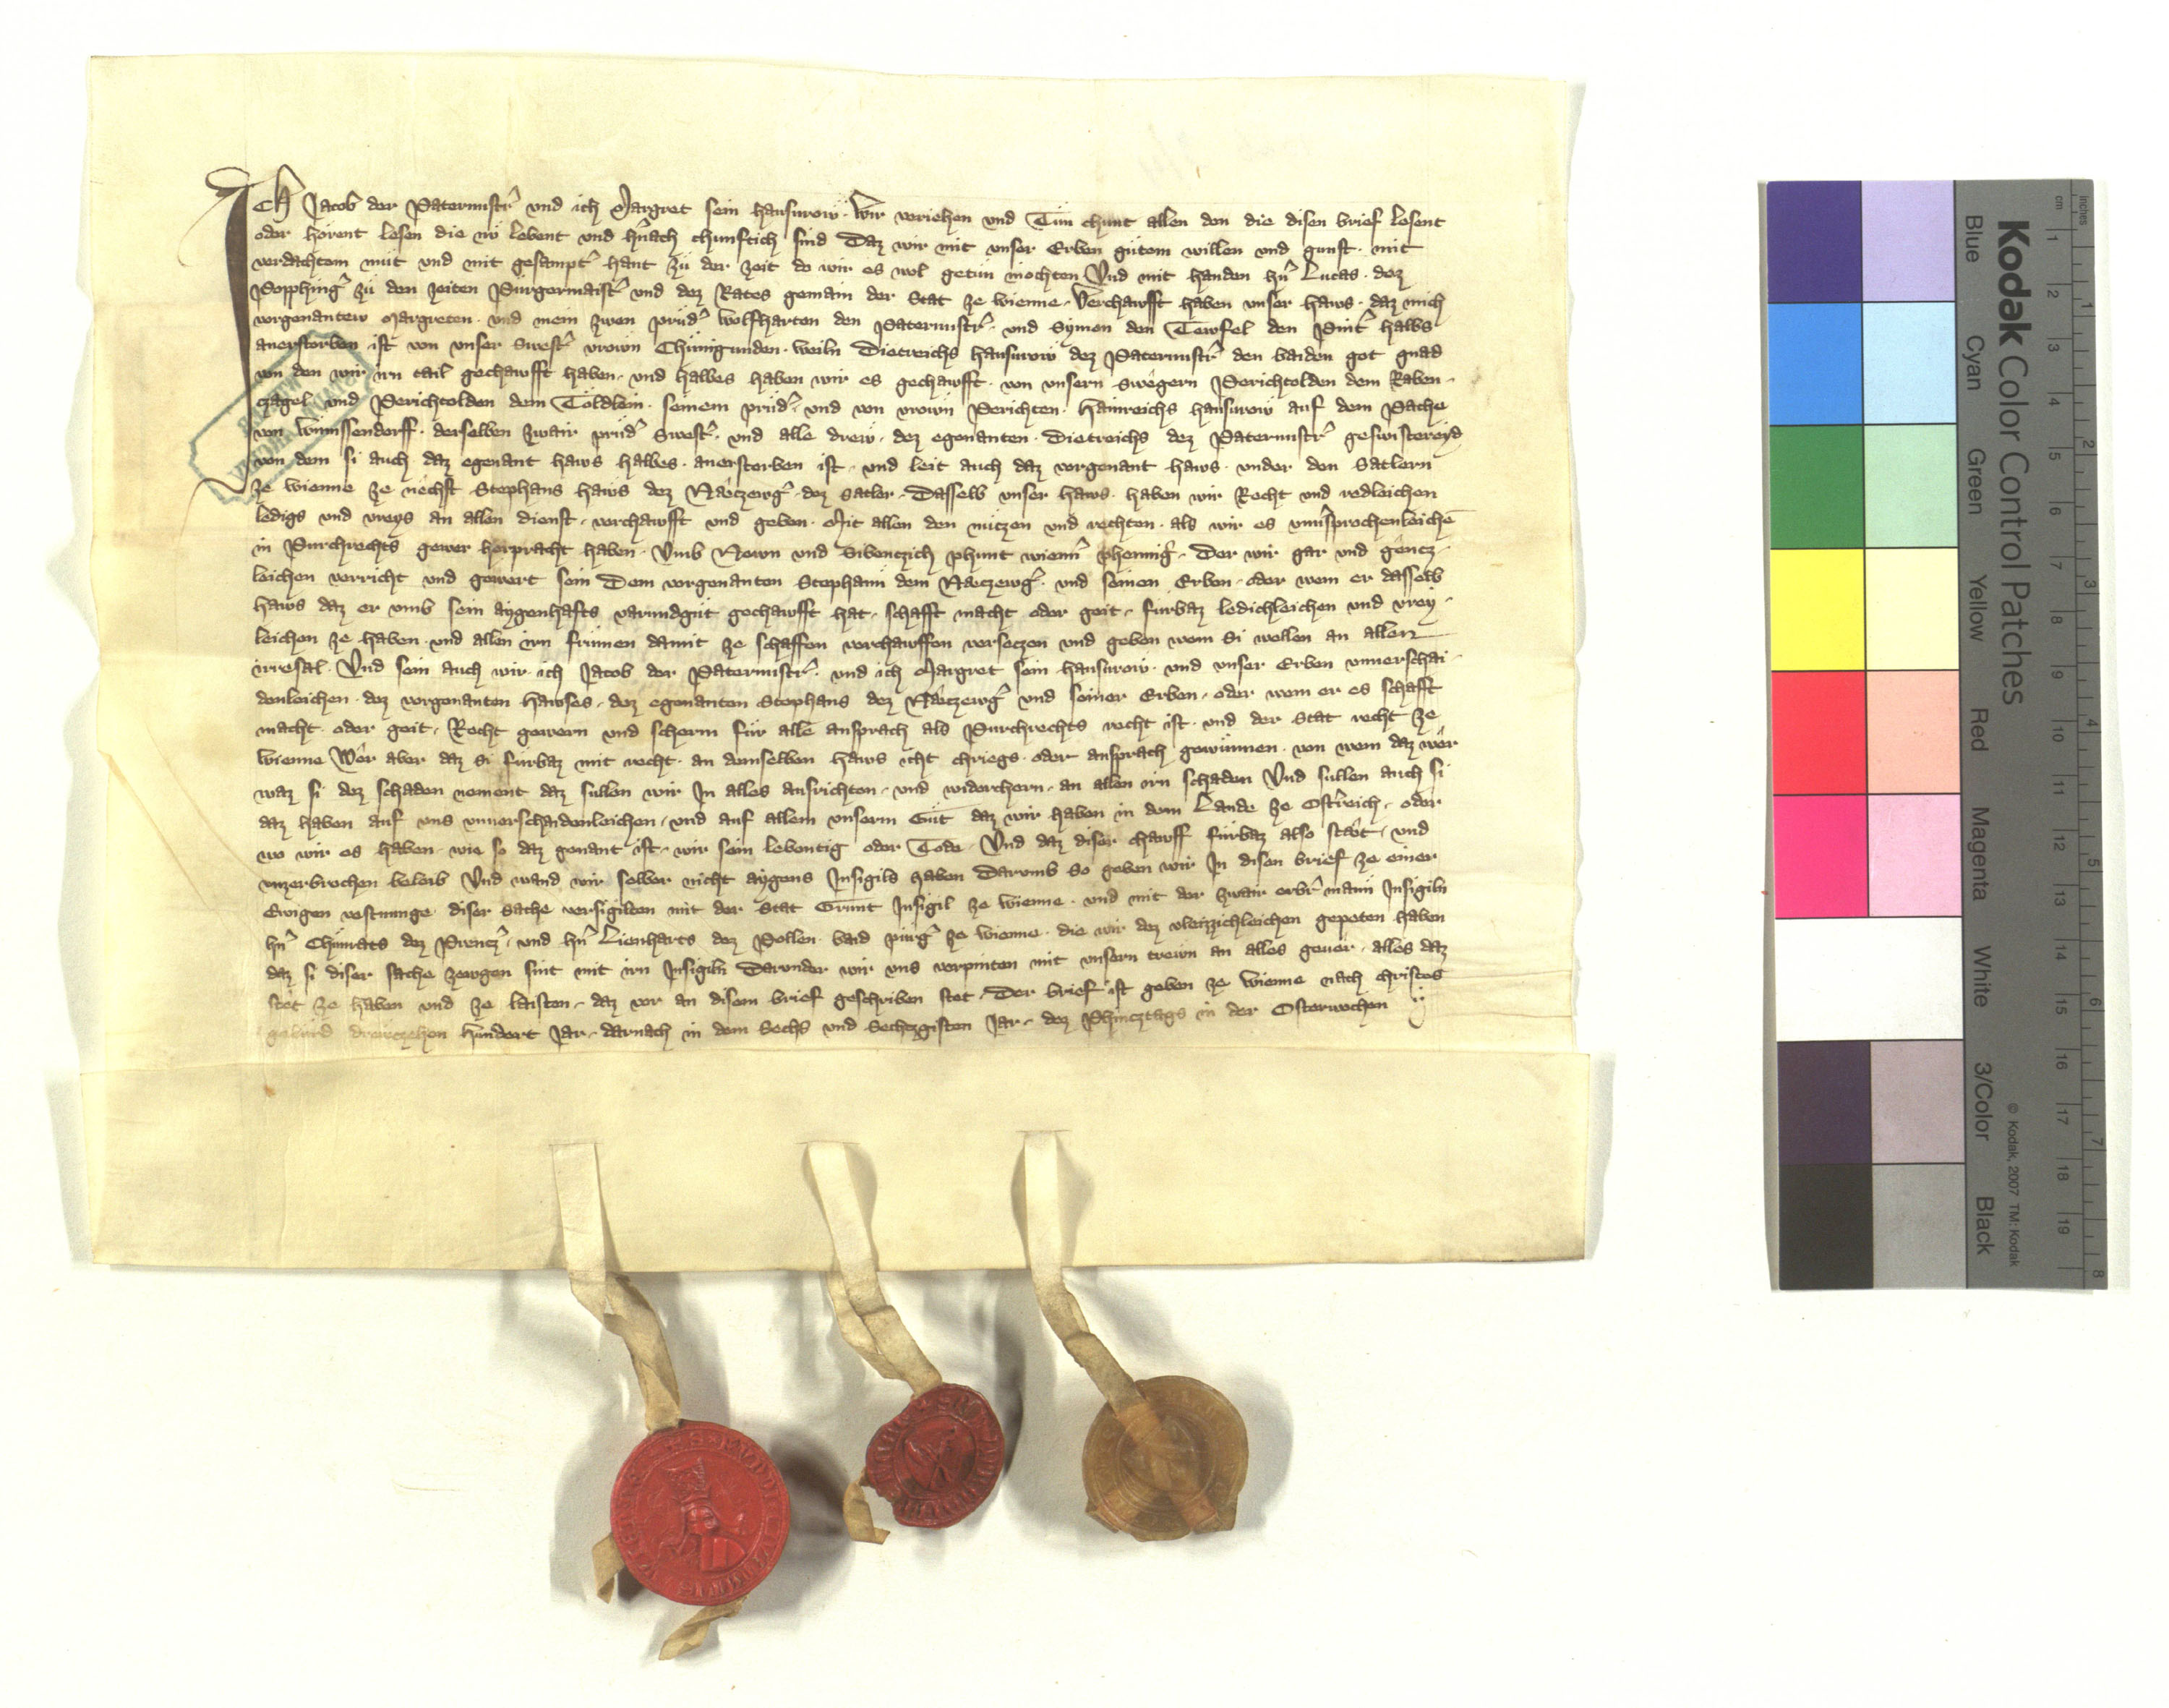 Ich Jacob der Paternustr̄ und ich Margret sein hausvrow · Wir veriehen und Tůn chunt allen den die disen brief lesent
oder hörent lesen die nv lebent und hn̄ach chunftich sind Daz wir mit unser Erben gůtem willen und gunst · mit
verdachtem mut und mit gesampt̄ hant zů der zeit do wir es wol getůn mochten Und mit handen hn̄ Lucas · dez
Popphinḡ zů den zeiten Purgermaist̄ und dez Rates gemain der Stat ze Wienne · Verchawfft haben unser haws · daz mich
vorgenantew Margreten · und mein zwen průd̄ Wolfharten den Paternustr̄ · und Symon den Tewfel den Pint̄ halbs
anerstorben ist von unser Swest̄ vrown Chunigunden · weiln Dietreichs hausvrow dez Paternustr̄ den baiden got gnad
von den wir irn tail gechawfft haben · und halbes haben wir es gechawfft · von unsern Swegern Perichtolden dem Raben-
zagel und Perichtolden dem Toldlein · seinem průd̄ · und von vrown Perichten · Hainreichs hausvrow auf dem Pache
von Wimissendorff · derselben zwair průd̄ Swest̄ · und alle drew · dez egenanten · Dietreichs dez Paternustr̄ geswistereyd
von dem si auch daz egenant haws halbes · anerstorben ist · und leit auch daz vorgenant haws · under den Satlern
ze Wienne ze nechst Stephans haws dez Naczewḡ · dez Satler · Dasselb unser haws · haben wir Recht und redleichen
ledigs und vreys an allen dienst · verchawfft und geben · Mit allen den nuczen und rechten · als wir es unu̇sprochenleichē
in Purchrechts gewer herpracht haben · Umb Newn und Sibenczich phunt wienn̄ phenniḡ · Der wir gar und gencz-
leichen verricht und gewert sein Dem vorgenanten Stephann dem Naczewḡ · und seinen Erben · oder wem er dasselb
haws daz er umb sein aygenhafts varundgůt gechawfft hat · schafft macht oder geit · fürbaz ledichleichen und vrey-
leichen ze haben · und allen irn frumen damit ze schaffen verchawffen verseczen und geben wem si wellen an allen
irresal · Und sein auch wir · ich Jacob der Paternustr̄ · und ich Margret sein hausvrow · und unser Erben unverschai-
denleichen · dez vorgenanten hawses · dez egenanten Stephans dez Naczewḡ und seiner Erben · oder wem er es schafft
macht · oder geit · Recht gewern und scherm für alle ansprach als Purchrechts recht ist · und der Stat recht ze
Wienne Wer aber daz si fürbaz mit recht · an demselben haws icht chriegs · oder ansprach gewunnen · von wem daz wer
waz si dez schaden nement daz sullen wir In alles ausrichten · und widerchern · an allen irn schaden Und sullen auch si
daz haben auf uns unverschaidenleichen · und auf allem unserm Gůt daz wir haben in dem Lande ze Ostr̄reich · oder
wo wir es haben · wie so daz genant ist · wir sein lebentig oder Tode · Und daz diser chawff fürbaz also stæt · und
unzerbrochen beleib Und wand wir selber nicht aygens Insigils haben Darumb So geben wir In disen brief ze einer
Ewigen vestnunge diser Sache versigilten mit der Stat Grunt Insigil ze Wienne · und mit der zwair erbr̄ mann Insigiln
hn̄ Chunrats dez Prencz̄ · und hn̄ Lienharts dez Pollen · baid purḡ ze Wienne · die wir dez vleizzichleichen gepeten haben
daz si diser sache zewgen sint mit irn Insigiln Darunder wir uns verpinten mit unsern trewn an alles gever · alles daz
stet ze haben und ze laisten · daz vor an disem brief geschriben stet · Der brief ist geben ze Wienne nach christes
gebůrd drewczehen hundert Jar · darnach in dem Sechs und Sechczgisten Jar · dez Phincztags in der Osterwochen
Kodak Color Control Patches
Blue Cyan Green Yellow Red Magenta White 3/Color Black
© Kodak, 2007 TM: Kodak
cm 1 2 3 4 5 6 7 8 9 10 11 12 13 14 15 16 17 18 19
inches 1 2 3 4 5 6 7 8